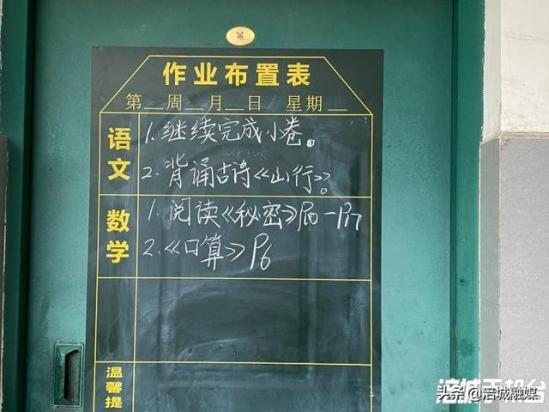 作业布置表
第__周__月__日 星期__
语文
1. 继续完成小卷。
2. 背诵古诗《山行》。
数学
1. 阅读《秘密》
2.《口算》P6
温馨提
头条 @涪城融媒